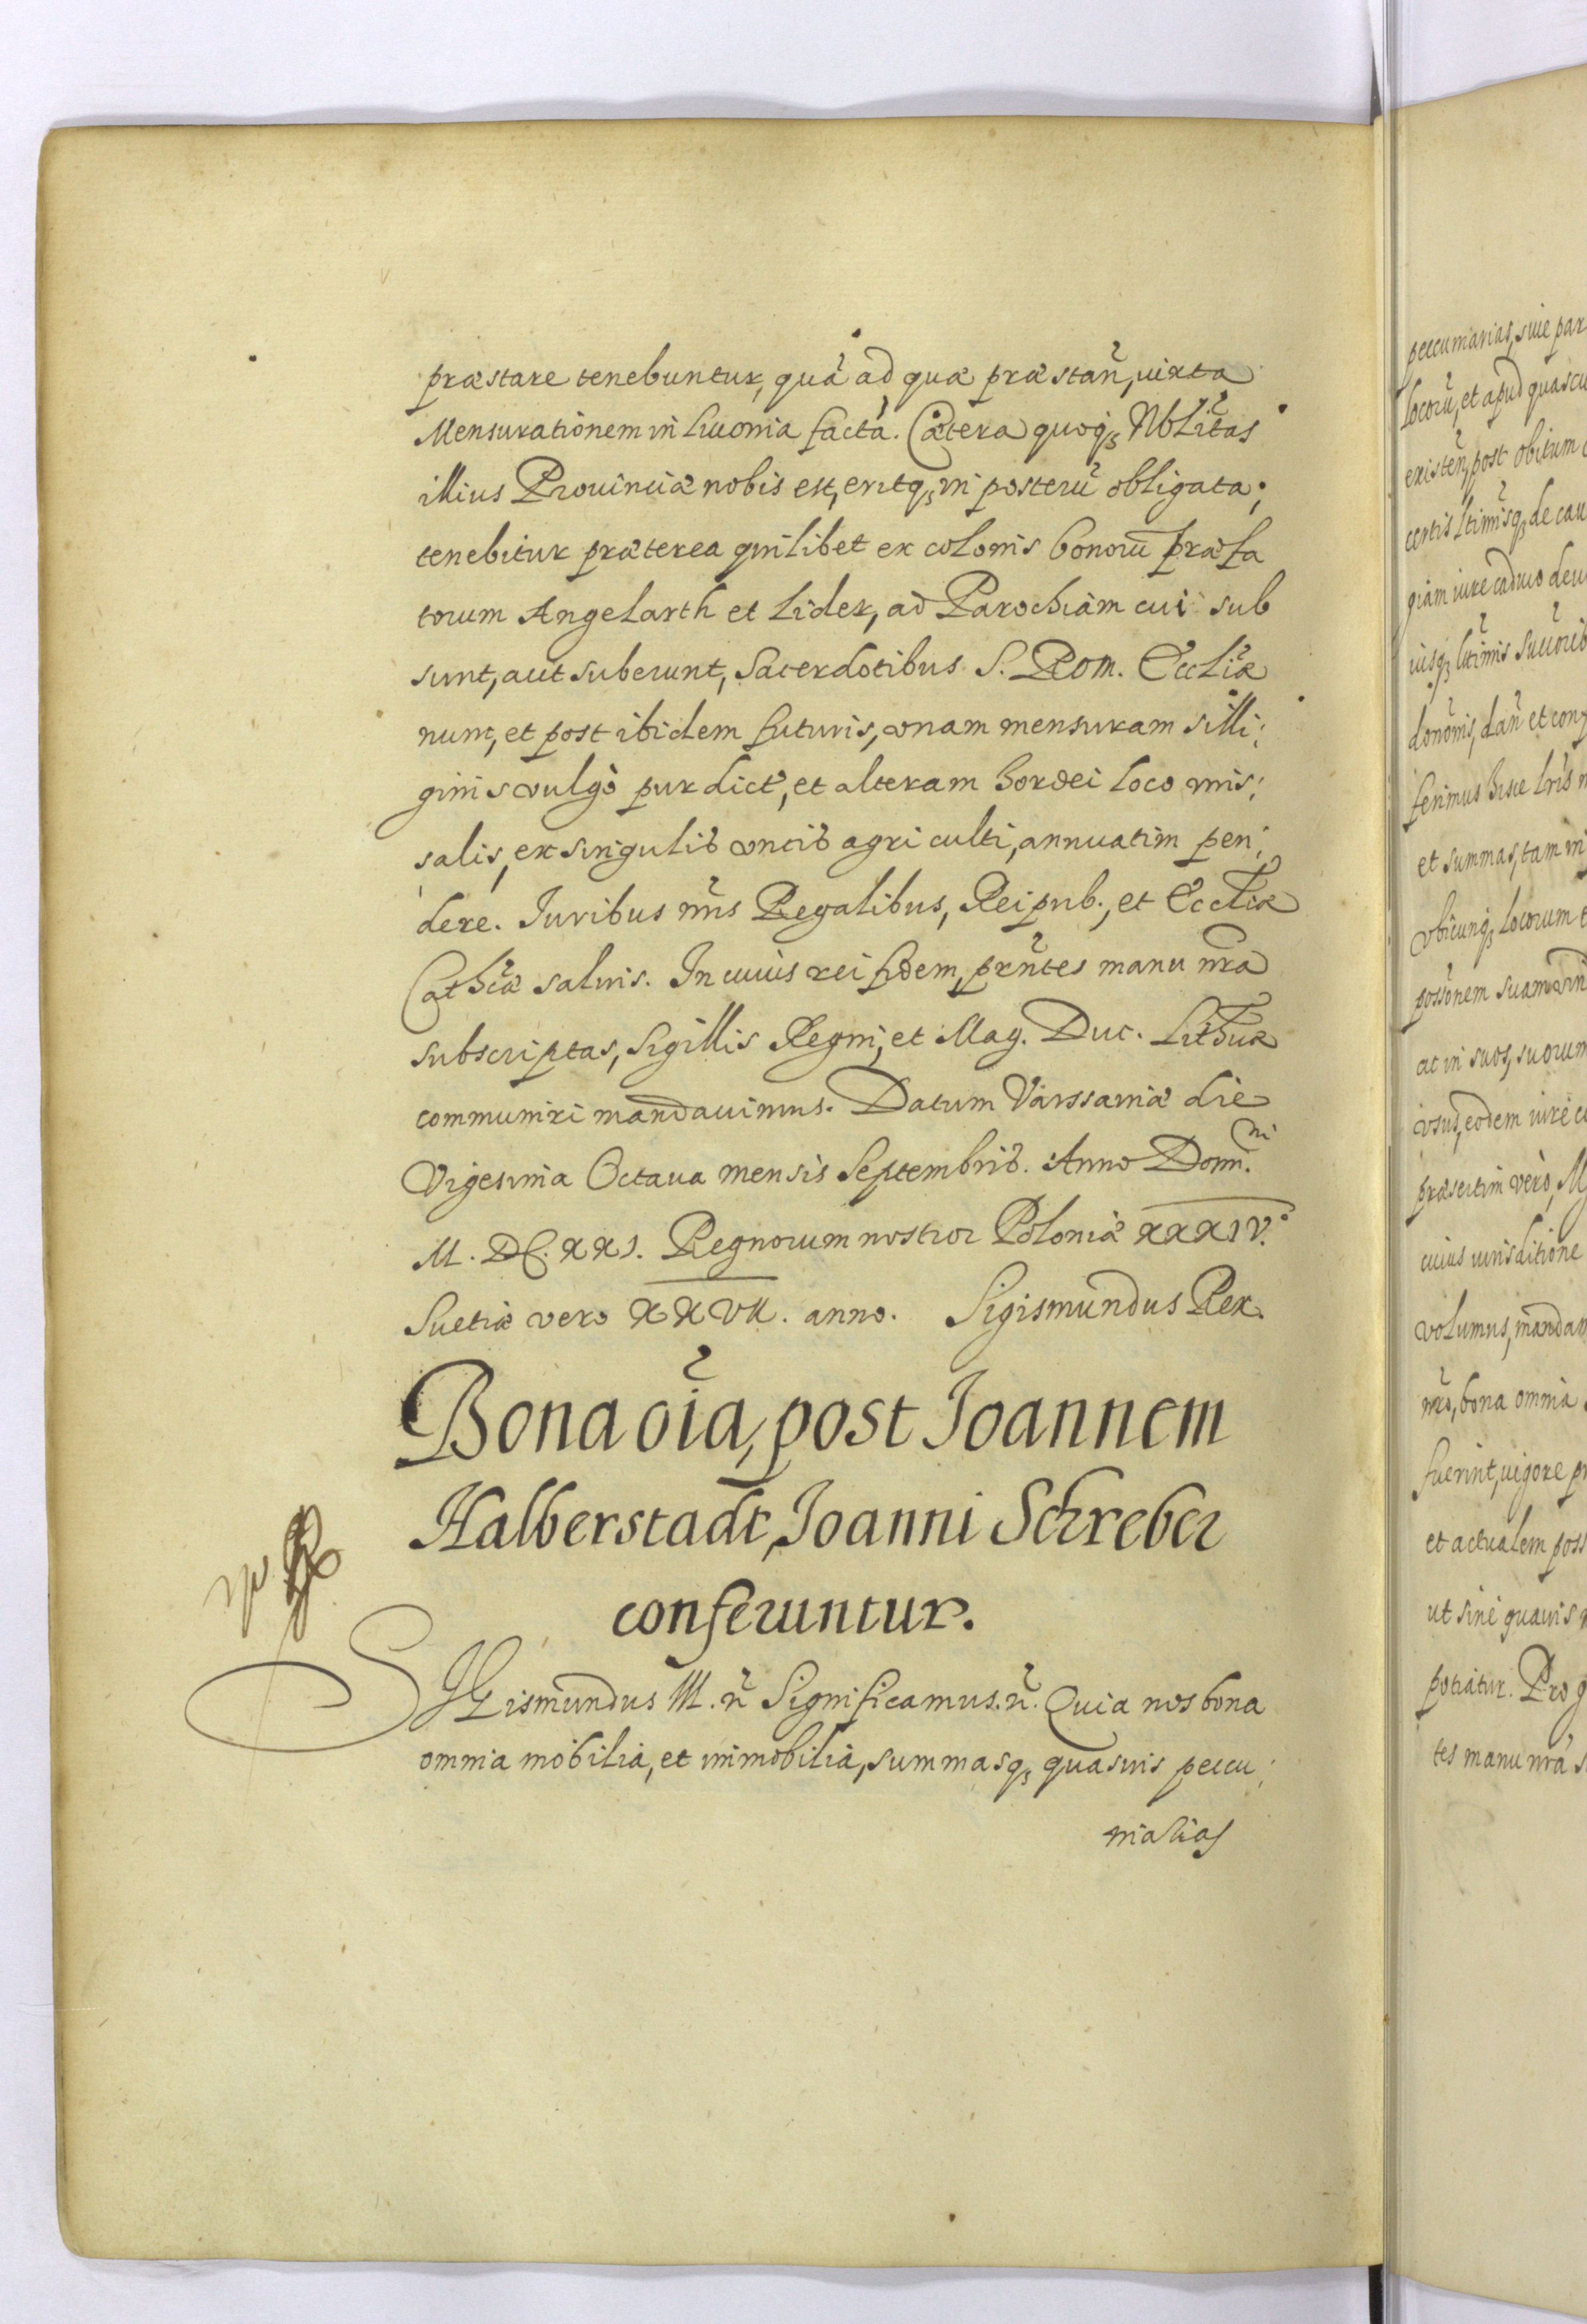 præstare tenebuntur, quã ad quæ præstañ, iuxta
Mensurationem in Liuonia factã. Cætera quoq₃ Nblĩtas
illius Prouinciæ nobis est, eritq₃ in posterũ obligata;
tenebitur præterea quilibet ex colonis bonorũ præfa
torum Angelarth et Lider, ad Parochiam cui sub
sunt, aut suberunt, Sacerdotibus S. Rom. Ecclĩæ
nunc, et post ibidem futuris, vnam mensuram silli:
ginis vulgò pur dict, et alteram hordei loco mis:
salis, ex singulis vncis agri culti, annuatim pen:
dere. Iuribus nr̃is Regalibus, Reipub., et Ecclĩæ
Cathcæ saluis. In cuius rei fidem, prñtes manu nrã
subscriptas, sigillis Regni, et Mag. Duc. Lithuæ
communiri mandauimus. Datum Varssauiæ die
Vigesima Octaua mensis Septembris. Anno Domni.
M. DC. XXI. Regnorum nostror Poloniæ XXXIV.
Suetiæ vero XXVII. anno. Sigismundus Rex.
Bona oĩa, post Ioannem
Halberstadt, Ioanni Schreber
conferuntur.
SIGismundus III. ñ Significamus. ñ. Quia nos bona
omnia mobilia, et immobilia, summasq₃ quasuis peccu:
niarias
peccuniarias, siue par
locorũ, et apud quascu
existeñ, post obitum
certis ltimisq₃ de cau
giam iure caduco deu
iisq₃ ltimis
donõnis, dañ et con
ferimus hisce lris
et summas, tam in
vbicunq₃ locorum
possõnem suam
ac in suos, suorum
vsus, eodem iure
præsertim verò, M
cuius iurisditione
volumus, mandam
nr̃o, bona omnia
fuerint, vigore pr
et actualem poss
ut sine quauis
potiatur. Pro
tes manu nrã s